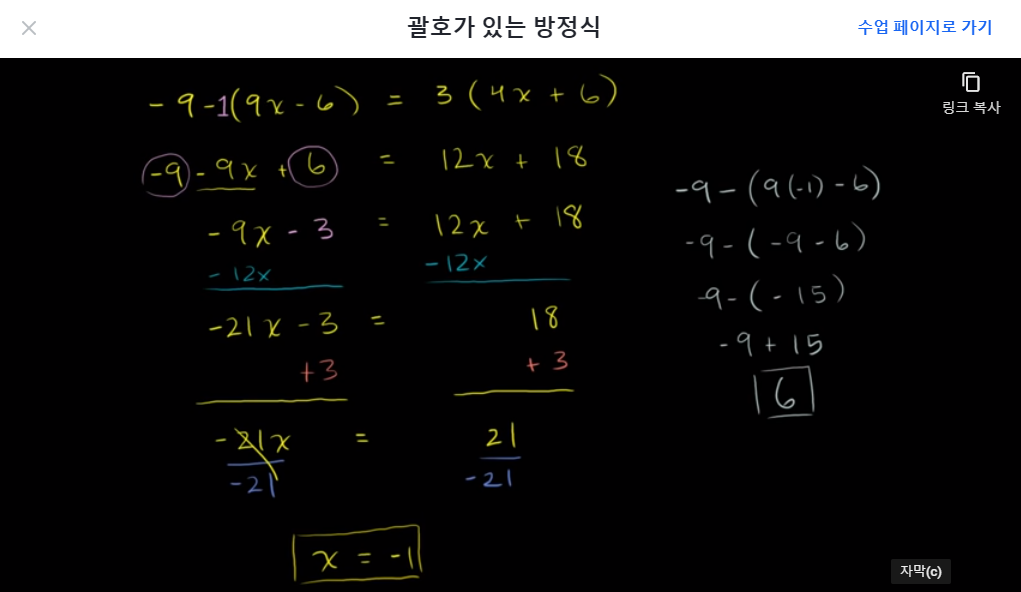 괄호가 있는 방정식
수업 페이지로 가기
링크 복사
-9-1(9x-6) = 3(4x+6)
-9-9x+6 = 12x+18
-9x-3 = 12x+18
-12x -12x
-21x-3 = 18
+3 +3
-21x = 21
-21 -21
x = -1
-9-(9(-1)-6)
-9-(-9-6)
-9-(-15)
-9+15
6
자막(c)